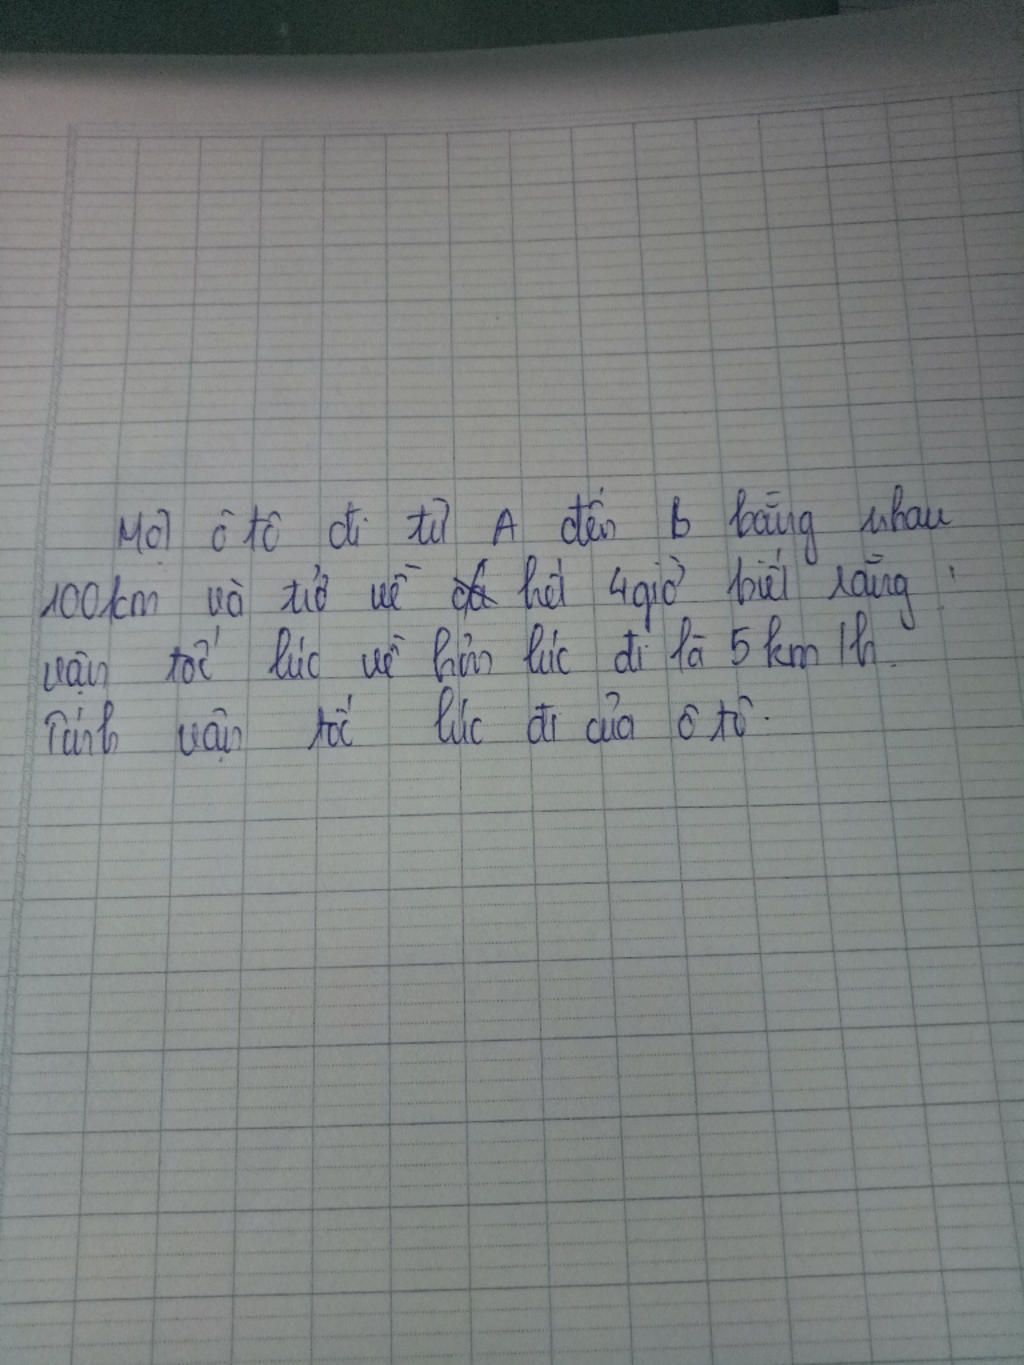 Một ô tô đi từ A đến B bằng nhau
100km và trở về hết 4giờ biết rằng
vận tốc lúc về hơn lúc đi là 5km/h.
Tính vận tốc lúc đi của ô tô.